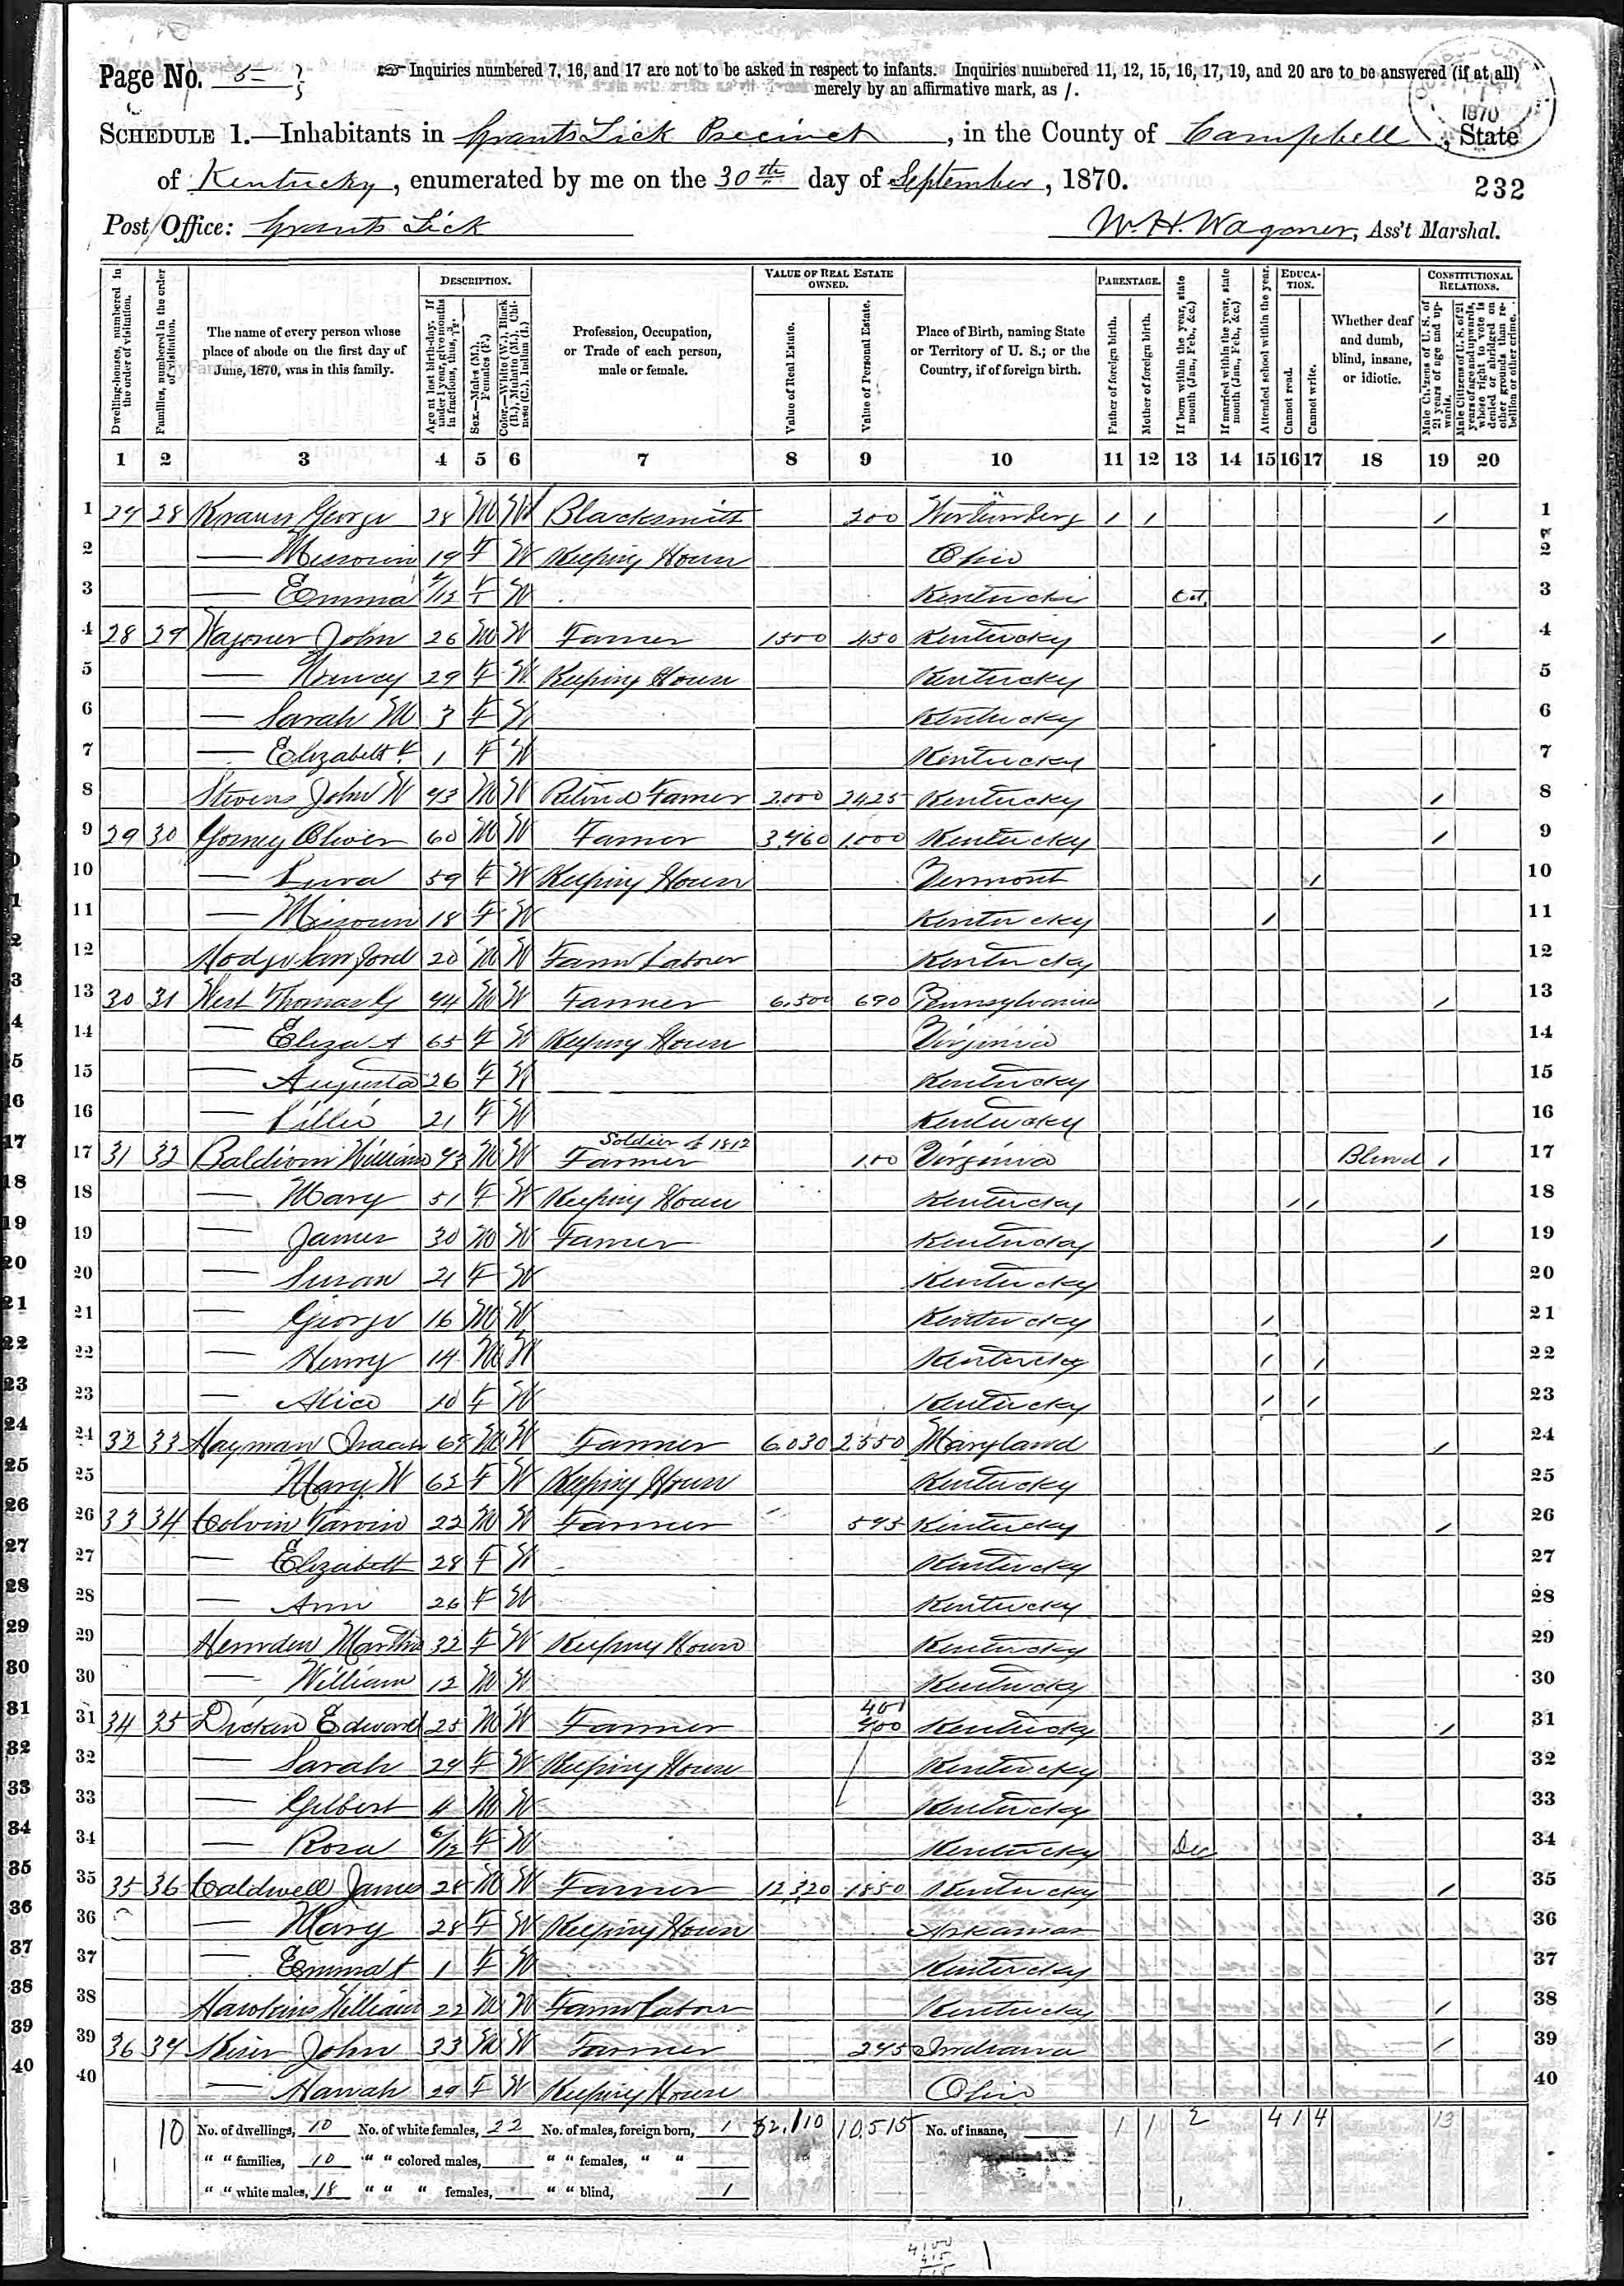 Page No. 5
Inquiries numbered 7, 16, and 17 are not to be asked in respect to infants. Inquiries numbered 11, 12, 15, 16, 17, 19, and 20 are to be answered (if at all)
merely by an affirmative mark, as /.
1870
SCHEDULE 1.—Inhabitants in Grants Lick Precinct, in the County of Campbell, State
of Kentucky, enumerated by me on the 30th day of September, 1870.
232
Post Office: Grants Lick
W. H. Wagoner, Ass't Marshal.
DESCRIPTION. VALUE OF REAL ESTATE OWNED. PARENTAGE. EDUCATION. CONSTITUTIONAL RELATIONS.
Dwelling-houses, numbered in the order of visitation.
Families, numbered in the order of visitation.
The name of every person whose place of abode on the first day of June, 1870, was in this family.
Age at last birth-day. If under 1 year, give months in fractions, thus, 3/12.
Sex.—Males (M.), Females (F.)
Color.—White (W.), Black (B.), Mulatto (M.), Chinese (C.), Indian (I.)
Profession, Occupation, or Trade of each person, male or female.
Value of Real Estate.
Value of Personal Estate.
Place of Birth, naming State or Territory of U. S.; or the Country, if of foreign birth.
Father of foreign birth.
Mother of foreign birth.
If born within the year, state month (Jan., Feb., &c.)
If married within the year, state month (Jan., Feb., &c.)
Attended school within the year.
Cannot read.
Cannot write.
Whether deaf and dumb, blind, insane, or idiotic.
Male Citizens of U. S. of 21 years of age and upwards.
Male Citizens of U. S. of 21 years of age and upwards, whose right to vote is denied or abridged on other grounds than rebellion or other crime.
1 2 3 4 5 6 7 8 9 10 11 12 13 14 15 16 17 18 19 20
1 28 George 28 M W Blacksmith 200 / / / 1
2 — Missouri 19 F W Keeping House Ohio 2
3 — Emma F W Kentucky Oct 3
4 28 29 Wagoner John 26 M W Farmer 1500 450 Kentucky / 4
5 — Nancy 29 F W Keeping House Kentucky 5
6 — Sarah M 3 F W Kentucky 6
7 — Elizabeth F 1 F W Kentucky 7
8 Stevens John W M W Retired Farmer 2000 2425 Kentucky / 8
9 29 30 Oliver 60 M W Farmer 3,460 1,000 Kentucky / 9
10 — 59 F W Keeping House Vermont / 10
11 — Missouri 18 F W Kentucky / 11
12 20 M W Farm Laborer Kentucky 12
13 30 31 West Thomas G M W Farmer 6,500 690 Pennsylvania / 13
14 — Eliza A 65 F W Keeping House Virginia 14
15 — Augusta 26 F W Kentucky 15
16 — Lillie 21 F W Kentucky 16
Soldier of 1812
17 31 32 William M W Farmer 100 Virginia Blind / 17
18 — Mary 51 F W Keeping House Kentucky / / 18
19 — James 30 M W Farmer Kentucky / 19
20 — Susan 21 F W Kentucky 20
21 — George 16 M W Kentucky / 21
22 — Henry 14 M W Kentucky / / 22
23 — Alice 10 F W Kentucky / / 23
24 32 33 Hayman Isaac M W Farmer 6,030 2550 Maryland / 24
25 Mary W 62 F W Keeping House Kentucky 25
26 33 34 Colvin Tarvin 22 M W Farmer Kentucky / 26
27 — Elizabeth 28 F W Kentucky 27
28 — Ann 26 F W Kentucky 28
29 Martha 32 F W Keeping House Kentucky 29
30 — William 12 M W Kentucky 30
31 34 35 Dicken Edward 25 M W Farmer 400 Kentucky / 31
32 — Sarah 24 F W Keeping House Kentucky 32
33 — Gilbert 4 M W Kentucky 33
34 — Rosa 6/12 F W Kentucky Dec 34
35 35 36 Caldwell James 28 M W Farmer 12,320 1850 Kentucky / 35
36 — Mary 28 F W Keeping House Arkansas 36
37 — Emma 1 F W Kentucky 37
38 Hawkins William 22 M W Farm Labour Kentucky / 38
39 36 37 John 33 M W Farmer 245 Indiana / 39
40 — Hannah 29 F W Keeping House Ohio 40
10 No. of dwellings, 10 No. of white females, 22 No. of males, foreign born, 1 10,515 No. of insane, 1 1 2 4 1 4 13
" " families, 10 " " colored males, " " females, " "
" " white males, 18 " " " females, " " blind, 1